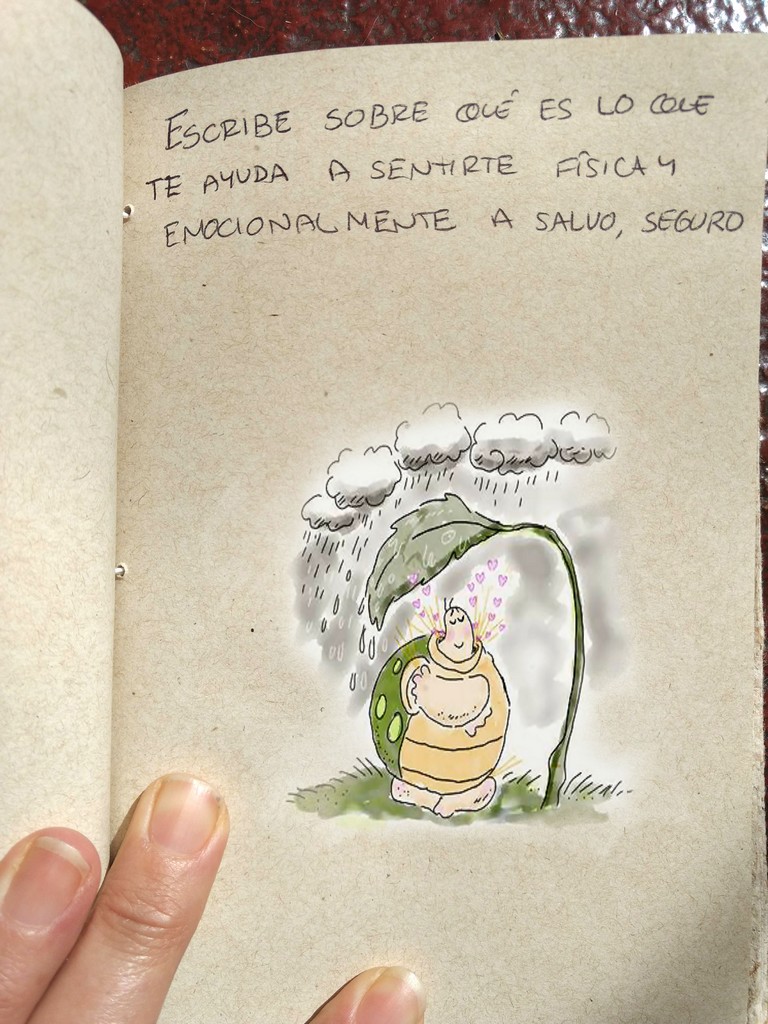 ESCRIBE SOBRE QUÉ ES LO QUE
TE AYUDA A SENTIRTE FÍSICA Y
EMOCIONALMENTE A SALVO, SEGURO